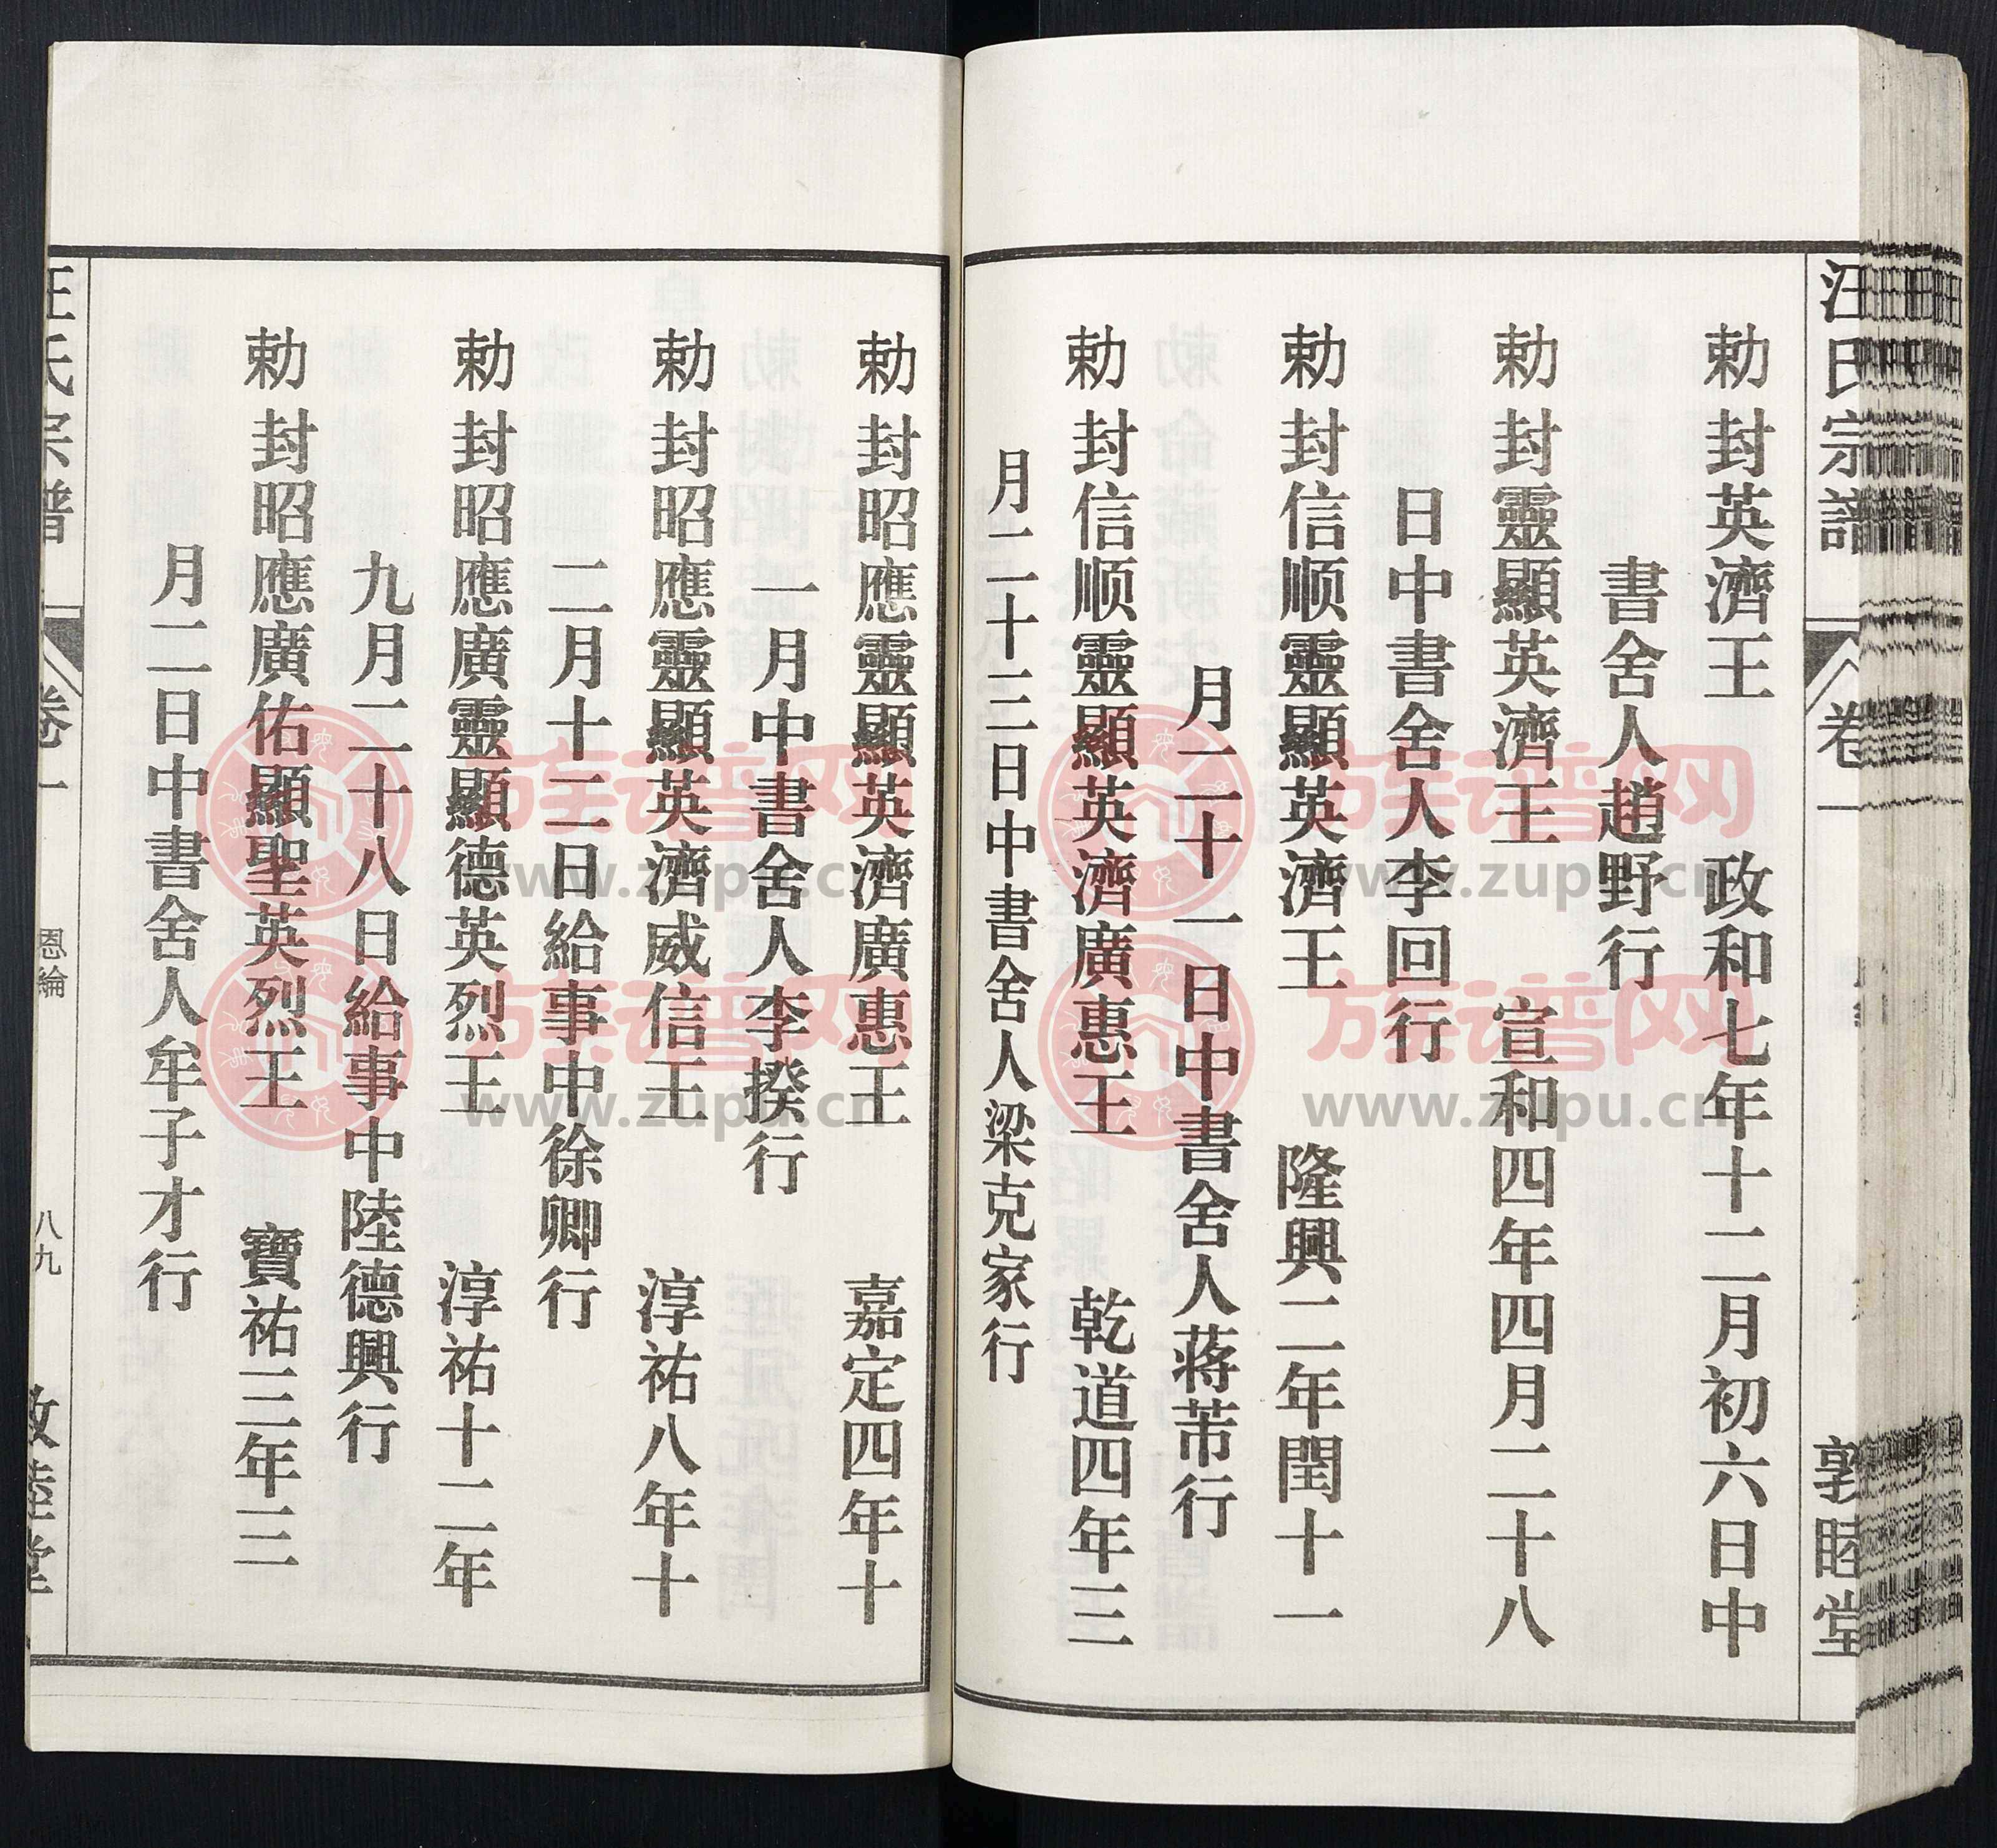 汪氏宗譜 卷一 敦睦堂
勅封英濟王 政和七年十二月初六日中
書舍人趙野行
勅封靈顯英濟王 宣和四年四月二十八
日中書舍人李回行
勅封信顺靈顯英濟王 隆興二年閏十一
月二十一日中書舍人蒋芾行
勅封信顺靈顯英濟廣惠王 乾道四年三
月二十三日中書舍人梁克家行
勅封昭應靈顯英濟廣惠王 嘉定四年十
一月中書舍人李揆行
勅封昭應靈顯英濟威信王 淳祐八年十
二月十二日給事中徐卿行
勅封昭應廣靈顯德英烈王 淳祐十二年
九月二十八日給事中陸德興行
勅封昭應廣佑顯聖英烈王 寶祐三年三
月二日中書舍人牟子才行
汪氏宗譜 卷一 恩綸 八九 敦睦堂
族谱网
www.zupu.cn
族谱网
www.zupu.cn
族谱网
www.zupu.cn
族谱网
www.zupu.cn